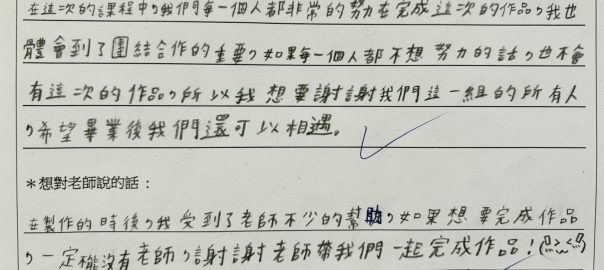 在這次的課程中，我們每一個人都非常的努力在完成這次的作品，我也
體會到了團結合作的重要，如果每一個人都不想努力的話，也不會
有這次的作品，所以我想要謝謝我們這一組的所有人
，希望畢業後我們還可以相遇。
＊想對老師說的話：
在製作的時後，我受到了老師不少的幫助，如果想要完成作品
，一定不能沒有老師，謝謝老師帶我們一起完成作品！